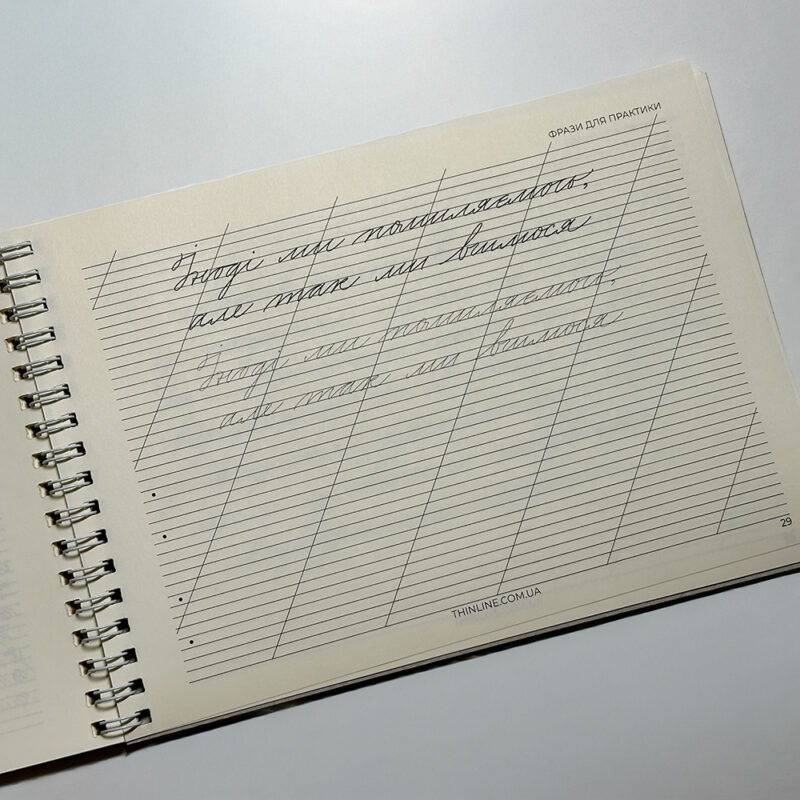 ФРАЗИ ДЛЯ ПРАКТИКИ
Іноді ми помиляємось,
але так ми вчимося
Іноді ми помиляємось,
але так ми вчимося
29
THINLINE.COM.UA